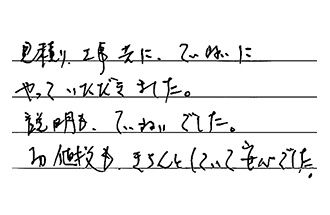 見積り、工事共に、ていねいに
やっていただきました。
説明も、ていねいでした。
お値段も、きちんとしていて安心でした。